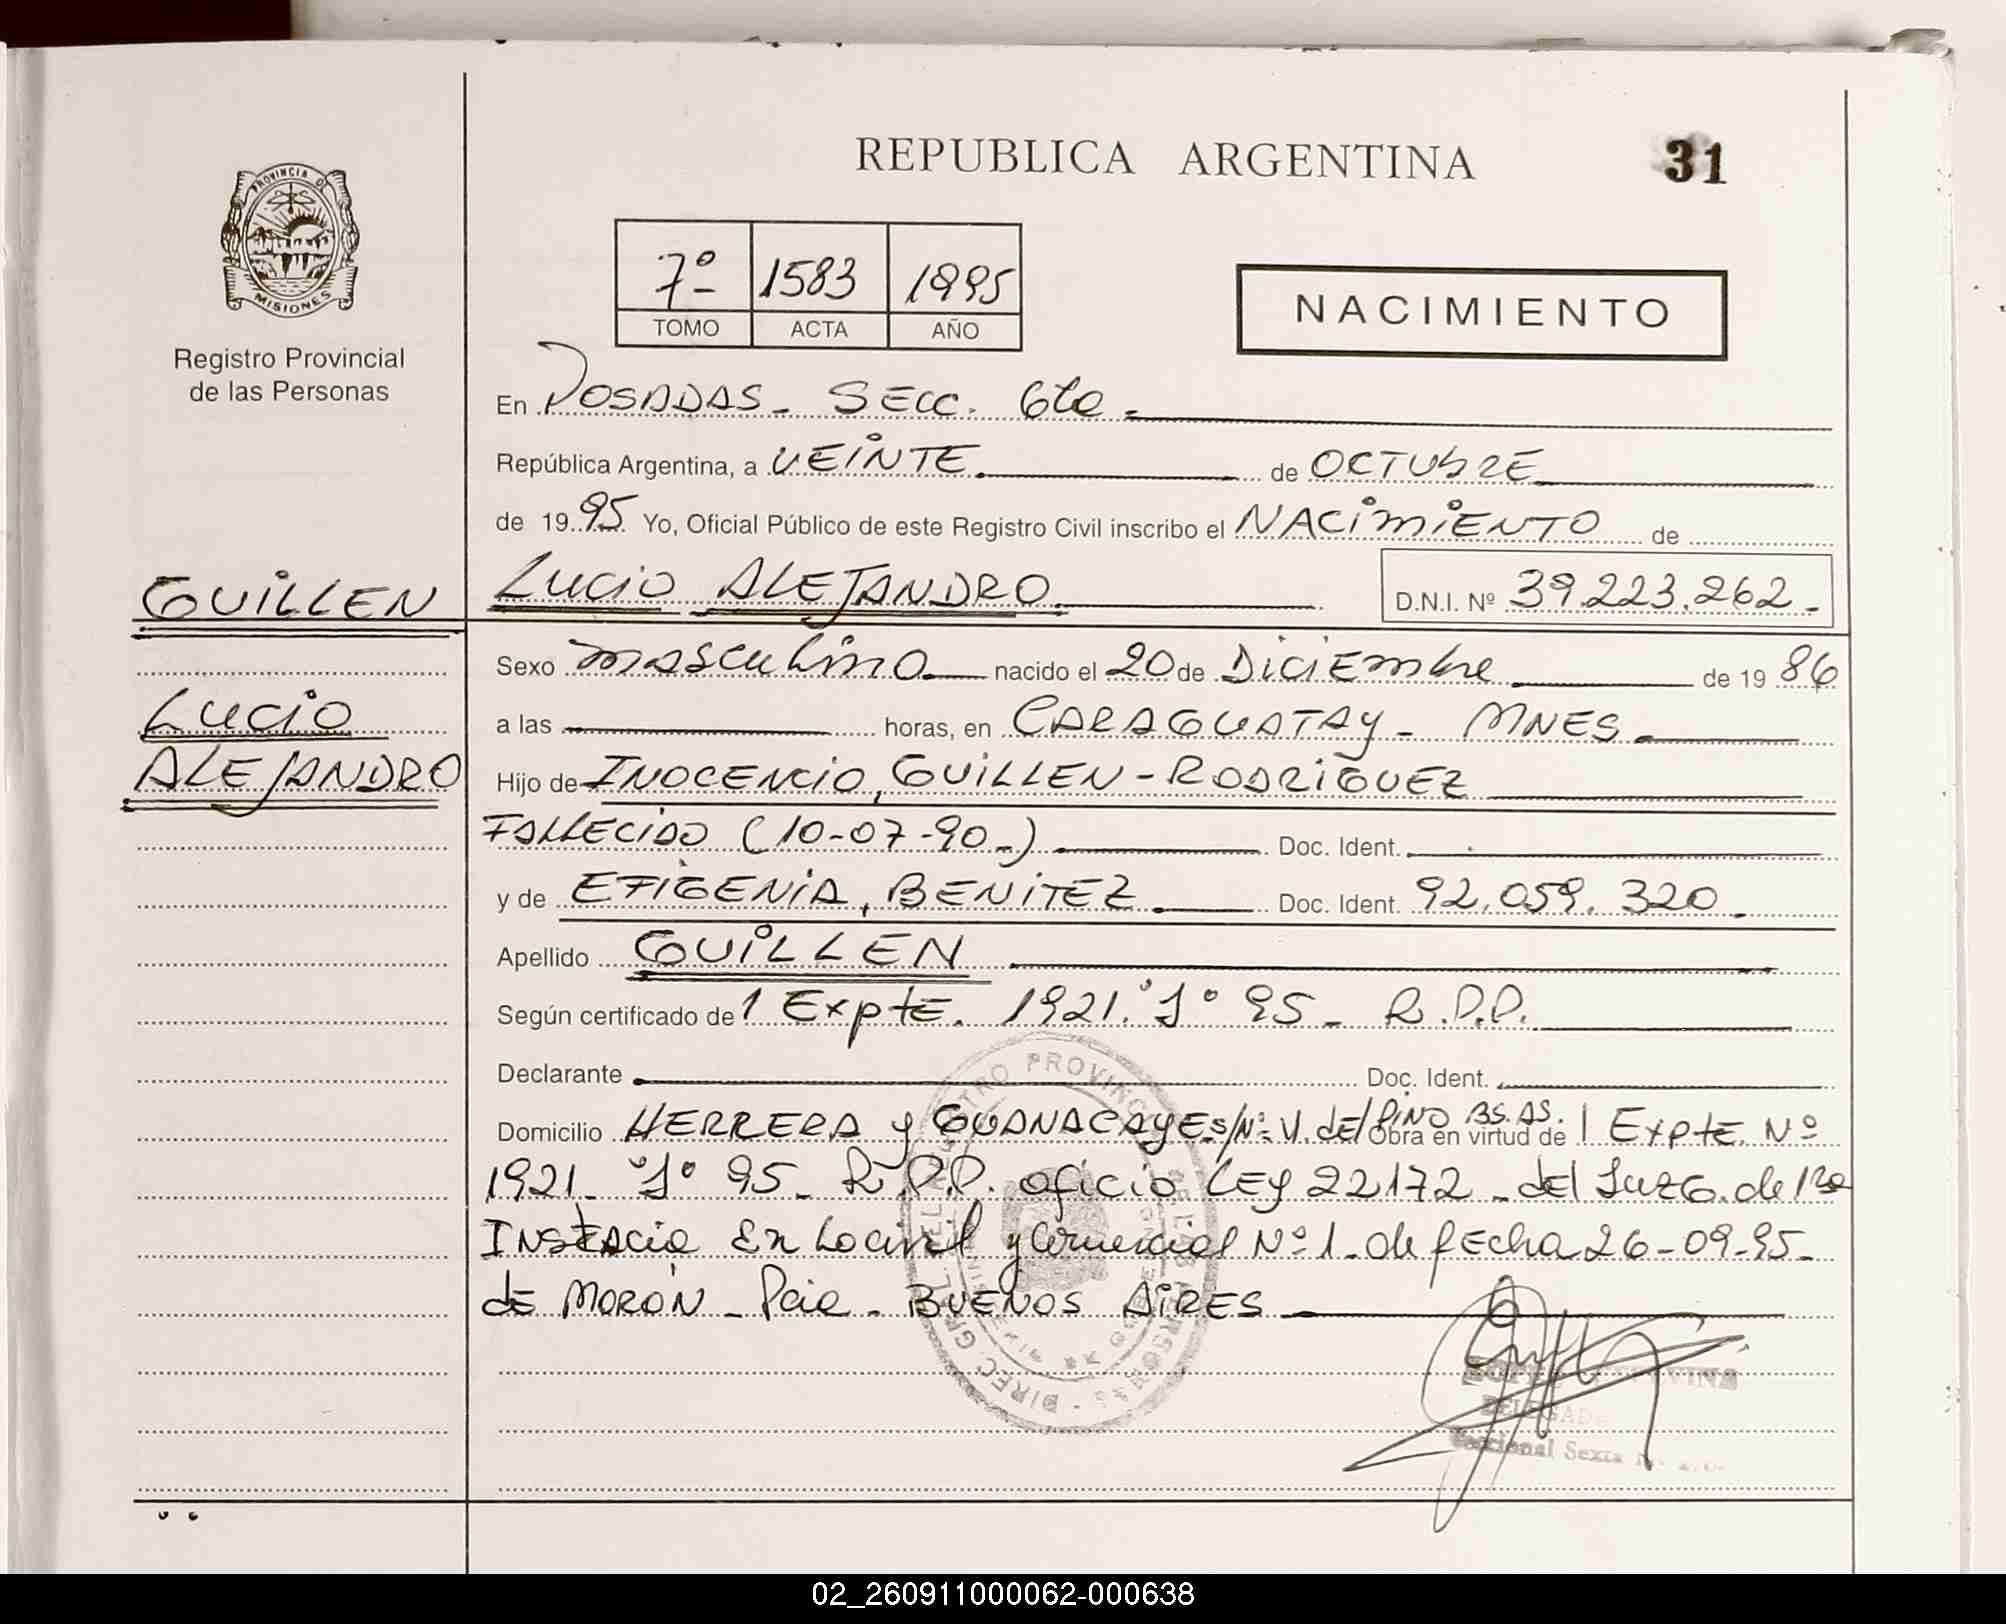 REPUBLICA ARGENTINA
31
PROVINCIA D
MISIONES
Registro Provincial
de las Personas
7º 1583 1995
TOMO ACTA AÑO
NACIMIENTO
En POSADAS - SECC. 6ta -
República Argentina, a VEINTE de OCTUBRE
de 1995 Yo, Oficial Público de este Registro Civil inscribo el NACIMIENTO de
GUILLEN LUCIO ALEJANDRO D.N.I. Nº 39.223.262.-
Sexo masculino nacido el 20 de DICIEmbre de 19 86
LUCIO a las horas, en CARAGUATAY - MNES
ALEJANDRO Hijo de INOCENCIO, GUILLEN-RODRIGUEZ
FALLECIDO (10-07-90.-) Doc. Ident.
y de EFIGENIA, BENITEZ Doc. Ident. 92.059.320.
Apellido GUILLEN
Según certificado de 1 Expte. 1921."J" 95 - R.P.P.
Declarante Doc. Ident.
Domicilio HERRERA y GUANACAYES/Nº V. del PINO BS.AS. Obra en virtud de 1 Expte. Nº
1921 - "J" 95 - R.P.P. oficio LEY 22172 - del Juzg. de 1ra
INStacia En Lo civil y Comercial Nº 1 - de fecha 26-09-95-
de MORÓN - Pcia - BUENOS AIRES
DELEGADA
Seccional Sexta
02_260911000062-000638